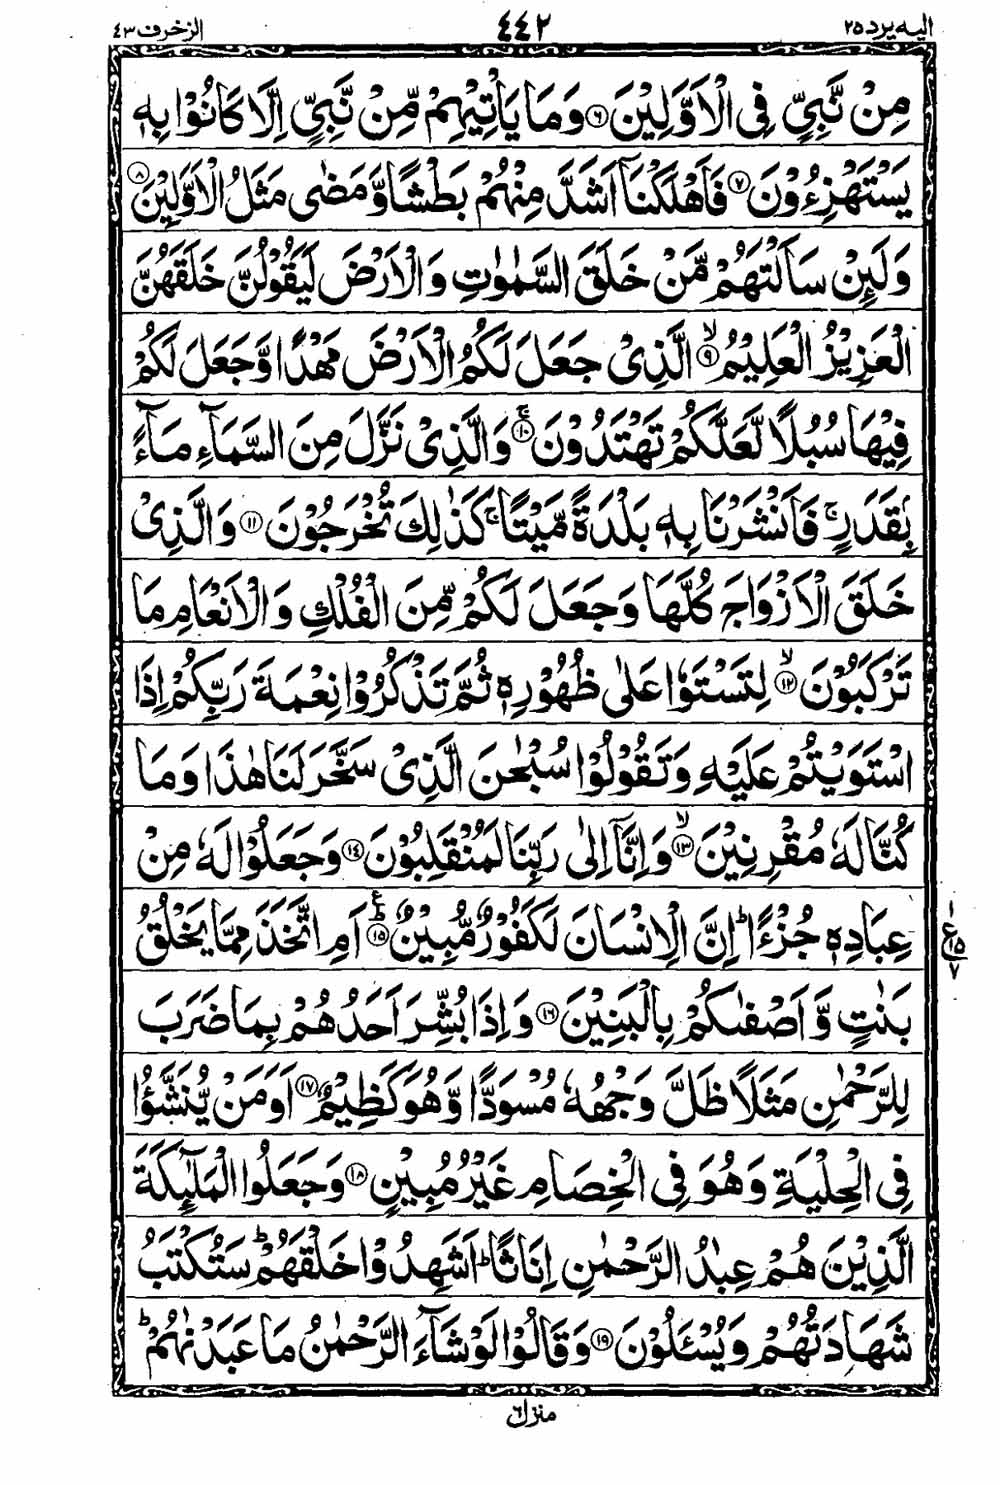 اليه يرد ٢٥ ٤٤٢ الزخرف ٤٣
مِنْ نَّبِيٍّ فِى الْاَوَّلِيْنَ ۝٦ وَمَا يَاْتِيْهِمْ مِّنْ نَّبِيٍّ اِلَّا كَانُوْا بِهٖ
يَسْتَهْزِءُوْنَ ۝٧ فَاَهْلَكْنَاۤ اَشَدَّ مِنْهُمْ بَطْشًا وَّ مَضٰى مَثَلُ الْاَوَّلِيْنَ ۝٨
وَلَىِٕنْ سَاَلْتَهُمْ مَّنْ خَلَقَ السَّمٰوٰتِ وَالْاَرْضَ لَيَقُوْلُنَّ خَلَقَهُنَّ
الْعَزِيْزُ الْعَلِيْمُ ۝٩ۙ الَّذِىْ جَعَلَ لَكُمُ الْاَرْضَ مَهْدًا وَّجَعَلَ لَكُمْ
فِيْهَا سُبُلًا لَّعَلَّكُمْ تَهْتَدُوْنَ ۝١٠ۚ وَالَّذِىْ نَزَّلَ مِنَ السَّمَآءِ مَآءًۢ
بِقَدَرٍۚ فَاَنْشَرْنَا بِهٖ بَلْدَةً مَّيْتًاۚ كَذٰلِكَ تُخْرَجُوْنَ ۝١١ وَالَّذِىْ
خَلَقَ الْاَزْوَاجَ كُلَّهَا وَجَعَلَ لَكُمْ مِّنَ الْفُلْكِ وَالْاَنْعَامِ مَا
تَرْكَبُوْنَ ۝١٢ۙ لِتَسْتَوٗا عَلٰى ظُهُوْرِهٖ ثُمَّ تَذْكُرُوْا نِعْمَةَ رَبِّكُمْ اِذَا
اسْتَوَيْتُمْ عَلَيْهِ وَتَقُوْلُوْا سُبْحٰنَ الَّذِىْ سَخَّرَ لَنَا هٰذَا وَمَا
كُنَّا لَهٗ مُقْرِنِيْنَ ۝١٣ۙ وَاِنَّاۤ اِلٰى رَبِّنَا لَمُنْقَلِبُوْنَ ۝١٤ وَجَعَلُوْا لَهٗ مِنْ
عِبَادِهٖ جُزْءًاؕ اِنَّ الْاِنْسَانَ لَكَفُوْرٌ مُّبِيْنٌ ۝١٥ؕ ع اَمِ اتَّخَذَ مِمَّا يَخْلُقُ
١ ع ١٥ ٧
بَنٰتٍ وَّاَصْفٰىكُمْ بِالْبَنِيْنَ ۝١٦ وَاِذَا بُشِّرَ اَحَدُهُمْ بِمَا ضَرَبَ
لِلرَّحْمٰنِ مَثَلًا ظَلَّ وَجْهُهٗ مُسْوَدًّا وَّهُوَ كَظِيْمٌ ۝١٧ اَوَمَنْ يُّنَشَّؤُا
فِى الْحِلْيَةِ وَهُوَ فِى الْخِصَامِ غَيْرُ مُبِيْنٍ ۝١٨ وَجَعَلُوا الْمَلٰٓىِٕكَةَ
الَّذِيْنَ هُمْ عِبٰدُ الرَّحْمٰنِ اِنَاثًاؕ اَشَهِدُوْا خَلْقَهُمْؕ سَتُكْتَبُ
شَهَادَتُهُمْ وَيُسْـَٔلُوْنَ ۝١٩ وَقَالُوْا لَوْ شَآءَ الرَّحْمٰنُ مَا عَبَدْنٰهُمْؕ
منزل ٦